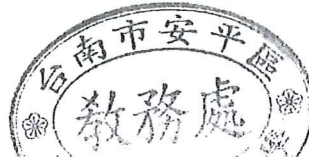 台南市安平區
教務處